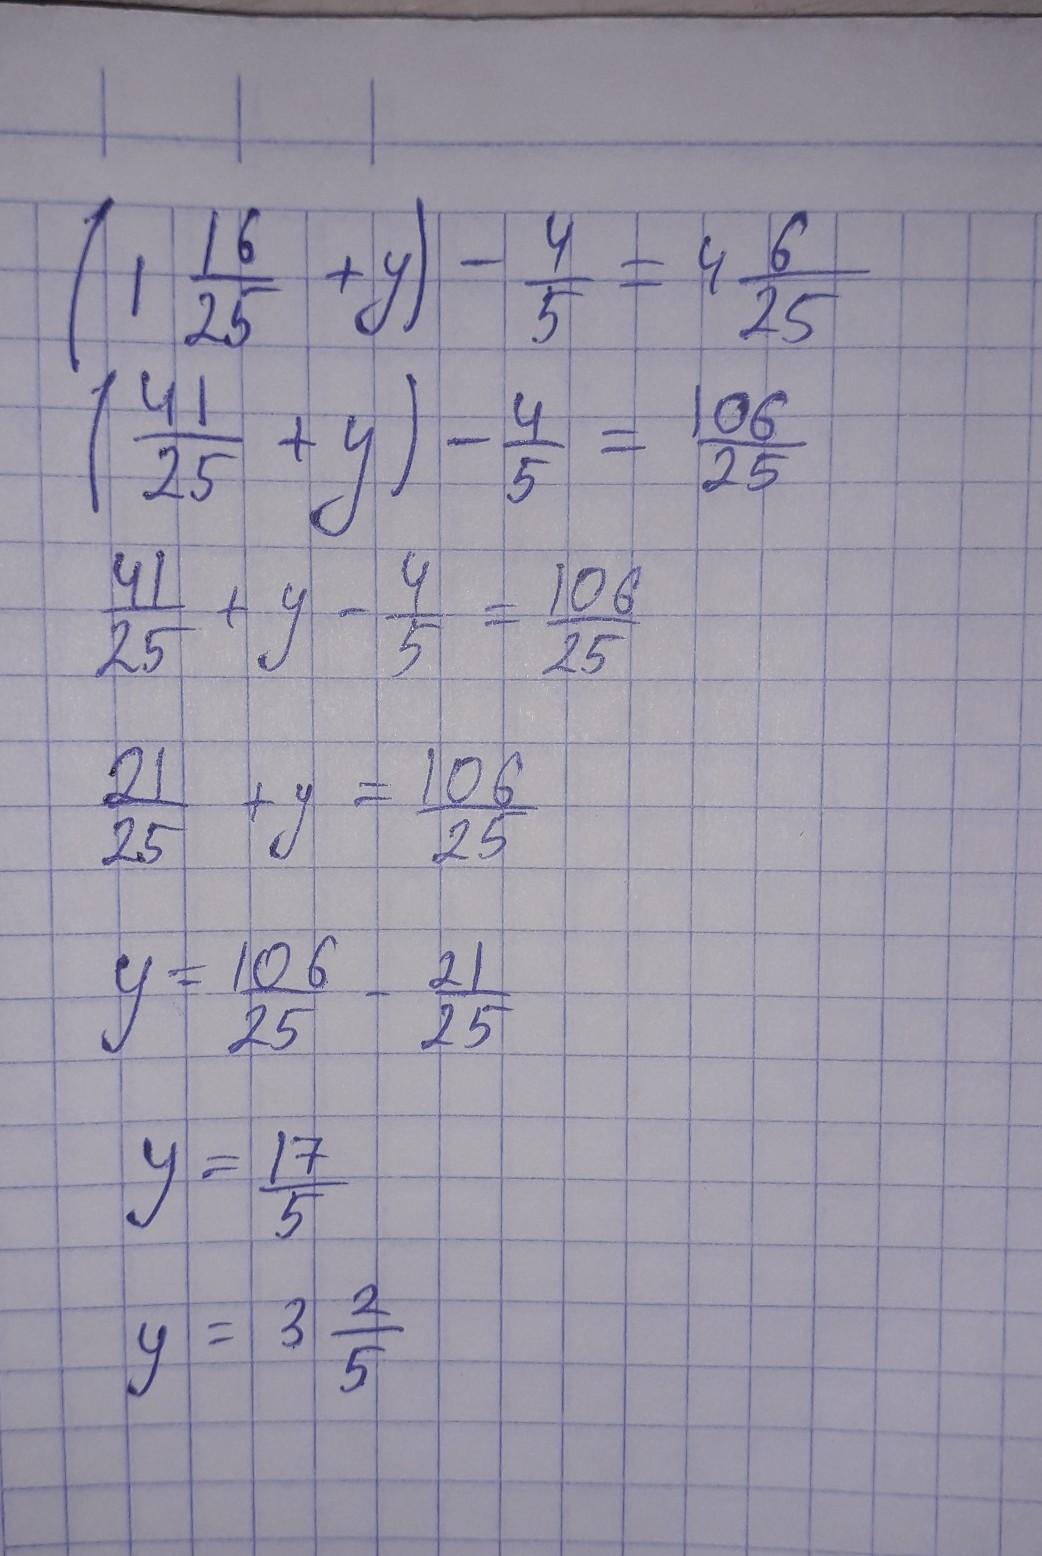 (1 16/25 + y) - 4/5 = 4 6/25
(41/25 + y) - 4/5 = 106/25
41/25 + y - 4/5 = 106/25
21/25 + y = 106/25
y = 106/25 - 21/25
y = 17/5
y = 3 2/5